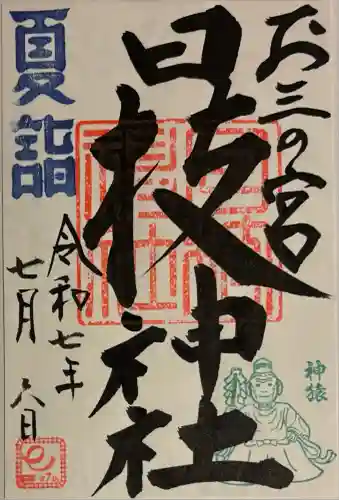 お三の宮
日枝神社
夏詣
令和七年
七月六日
神旅